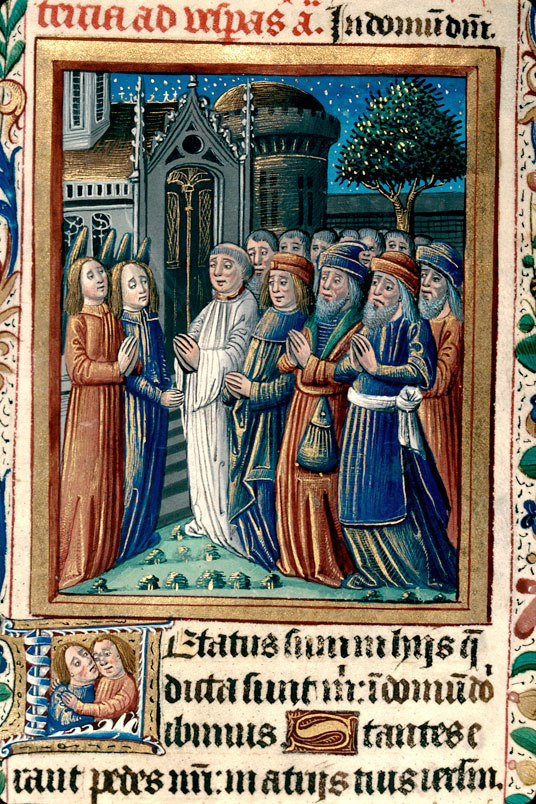 teria ad vesperas añ. In domum dni.
Letatus sum in hijs q̄
dicta sunt m̄: i domū dō
ibimus. Stantes e
rant pedes nr̄i: in atrijs tuis ierlm̄.